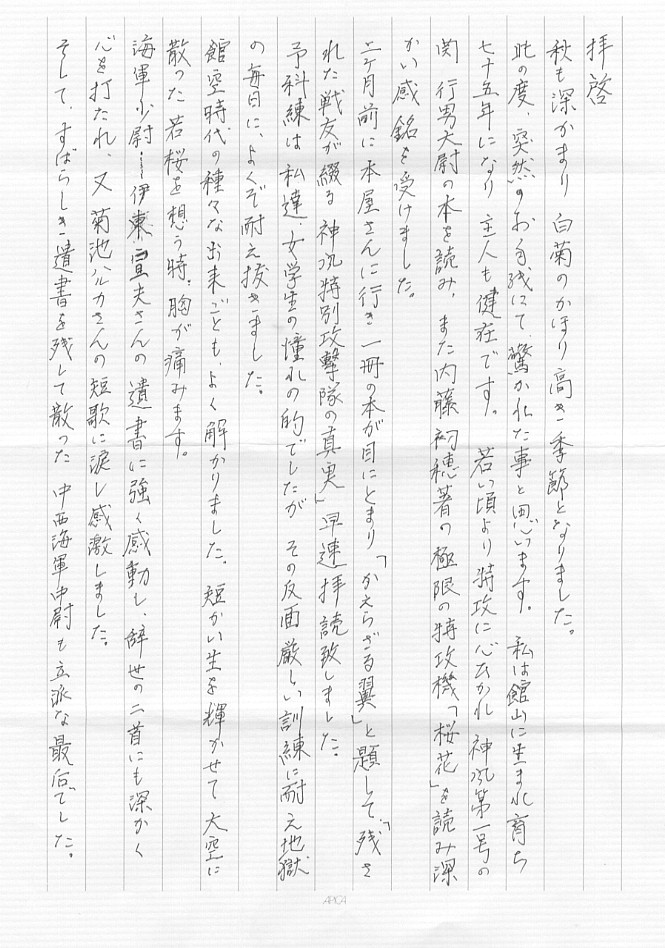 拝啓
秋も深かまり 白菊のかほり高き季節となりました。
此の度、突然のお手残にて、驚かれた事と思います。 私は館山に生まれ育ち
七十五年になり 主人も健在です。 若い頃より特攻に心ひかれ 神風第一号の
関 行男大尉の本を読み、また内藤初穂著の極限の特攻機「桜花」を読み深
かい感銘を受けました。
二ヶ月前に本屋さんに行き 一冊の本が目にとまり「かえらざる翼」と題して、「残さ
れた戦友が綴る 神風特別攻撃隊の真実」早速拝読致しました。
予科練は私達、女学生の憧れの的でしたが その反面厳しい訓練に耐え地獄
の毎日に、よくぞ耐え抜きました。
館空時代の種々な出来ごとも、よく解かりました。 短かい生を輝かせて大空に
散った若桜を想う時。胸が痛みます。
海軍少尉 伊東宣夫さんの 遺書に強く感動し、辞世の二首にも深かく
心を打たれ、又 菊池ハルカさんの短歌に涙し感激しました。
そして、すばらしき遺書を残して散った 中西海軍中尉も立派な最后でした。
APICA